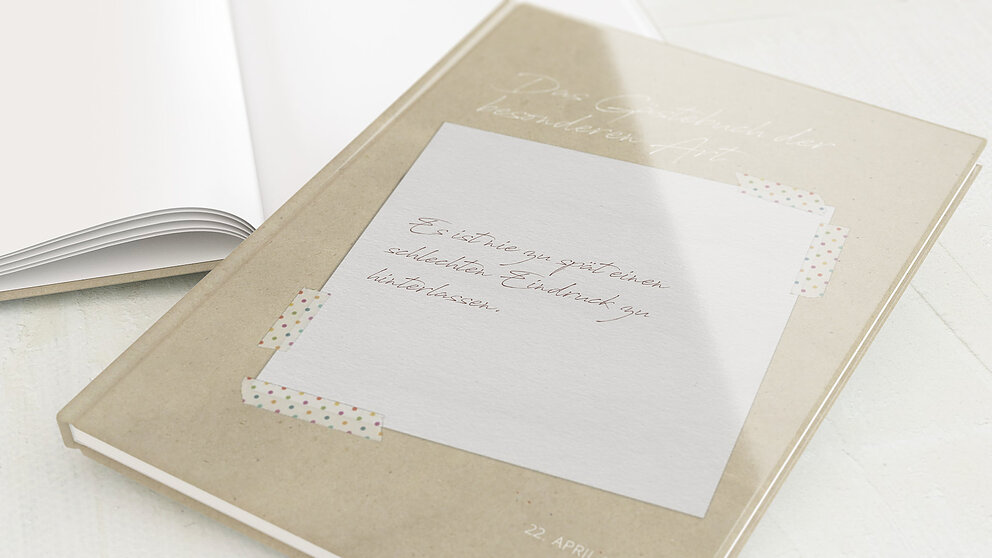 Das Gästebuch der
besonderen Art
Es ist nie zu spät einen
schlechten Eindruck zu
hinterlassen.
22. APRIL